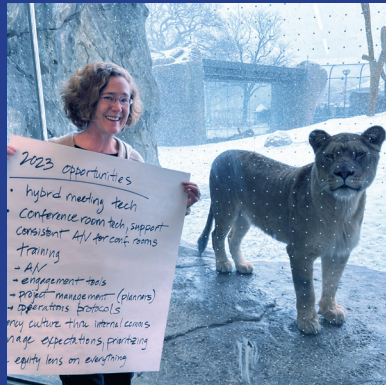 2023 opportunities
• hybrid meeting tech
• conference room tech, support
consistent A/V for conf. rooms
training
→ A/V
→ engagement tools
→ project management (planners)
→ operations protocols
culture thru internal comms
expectations, prioritizing
equity lens on everything